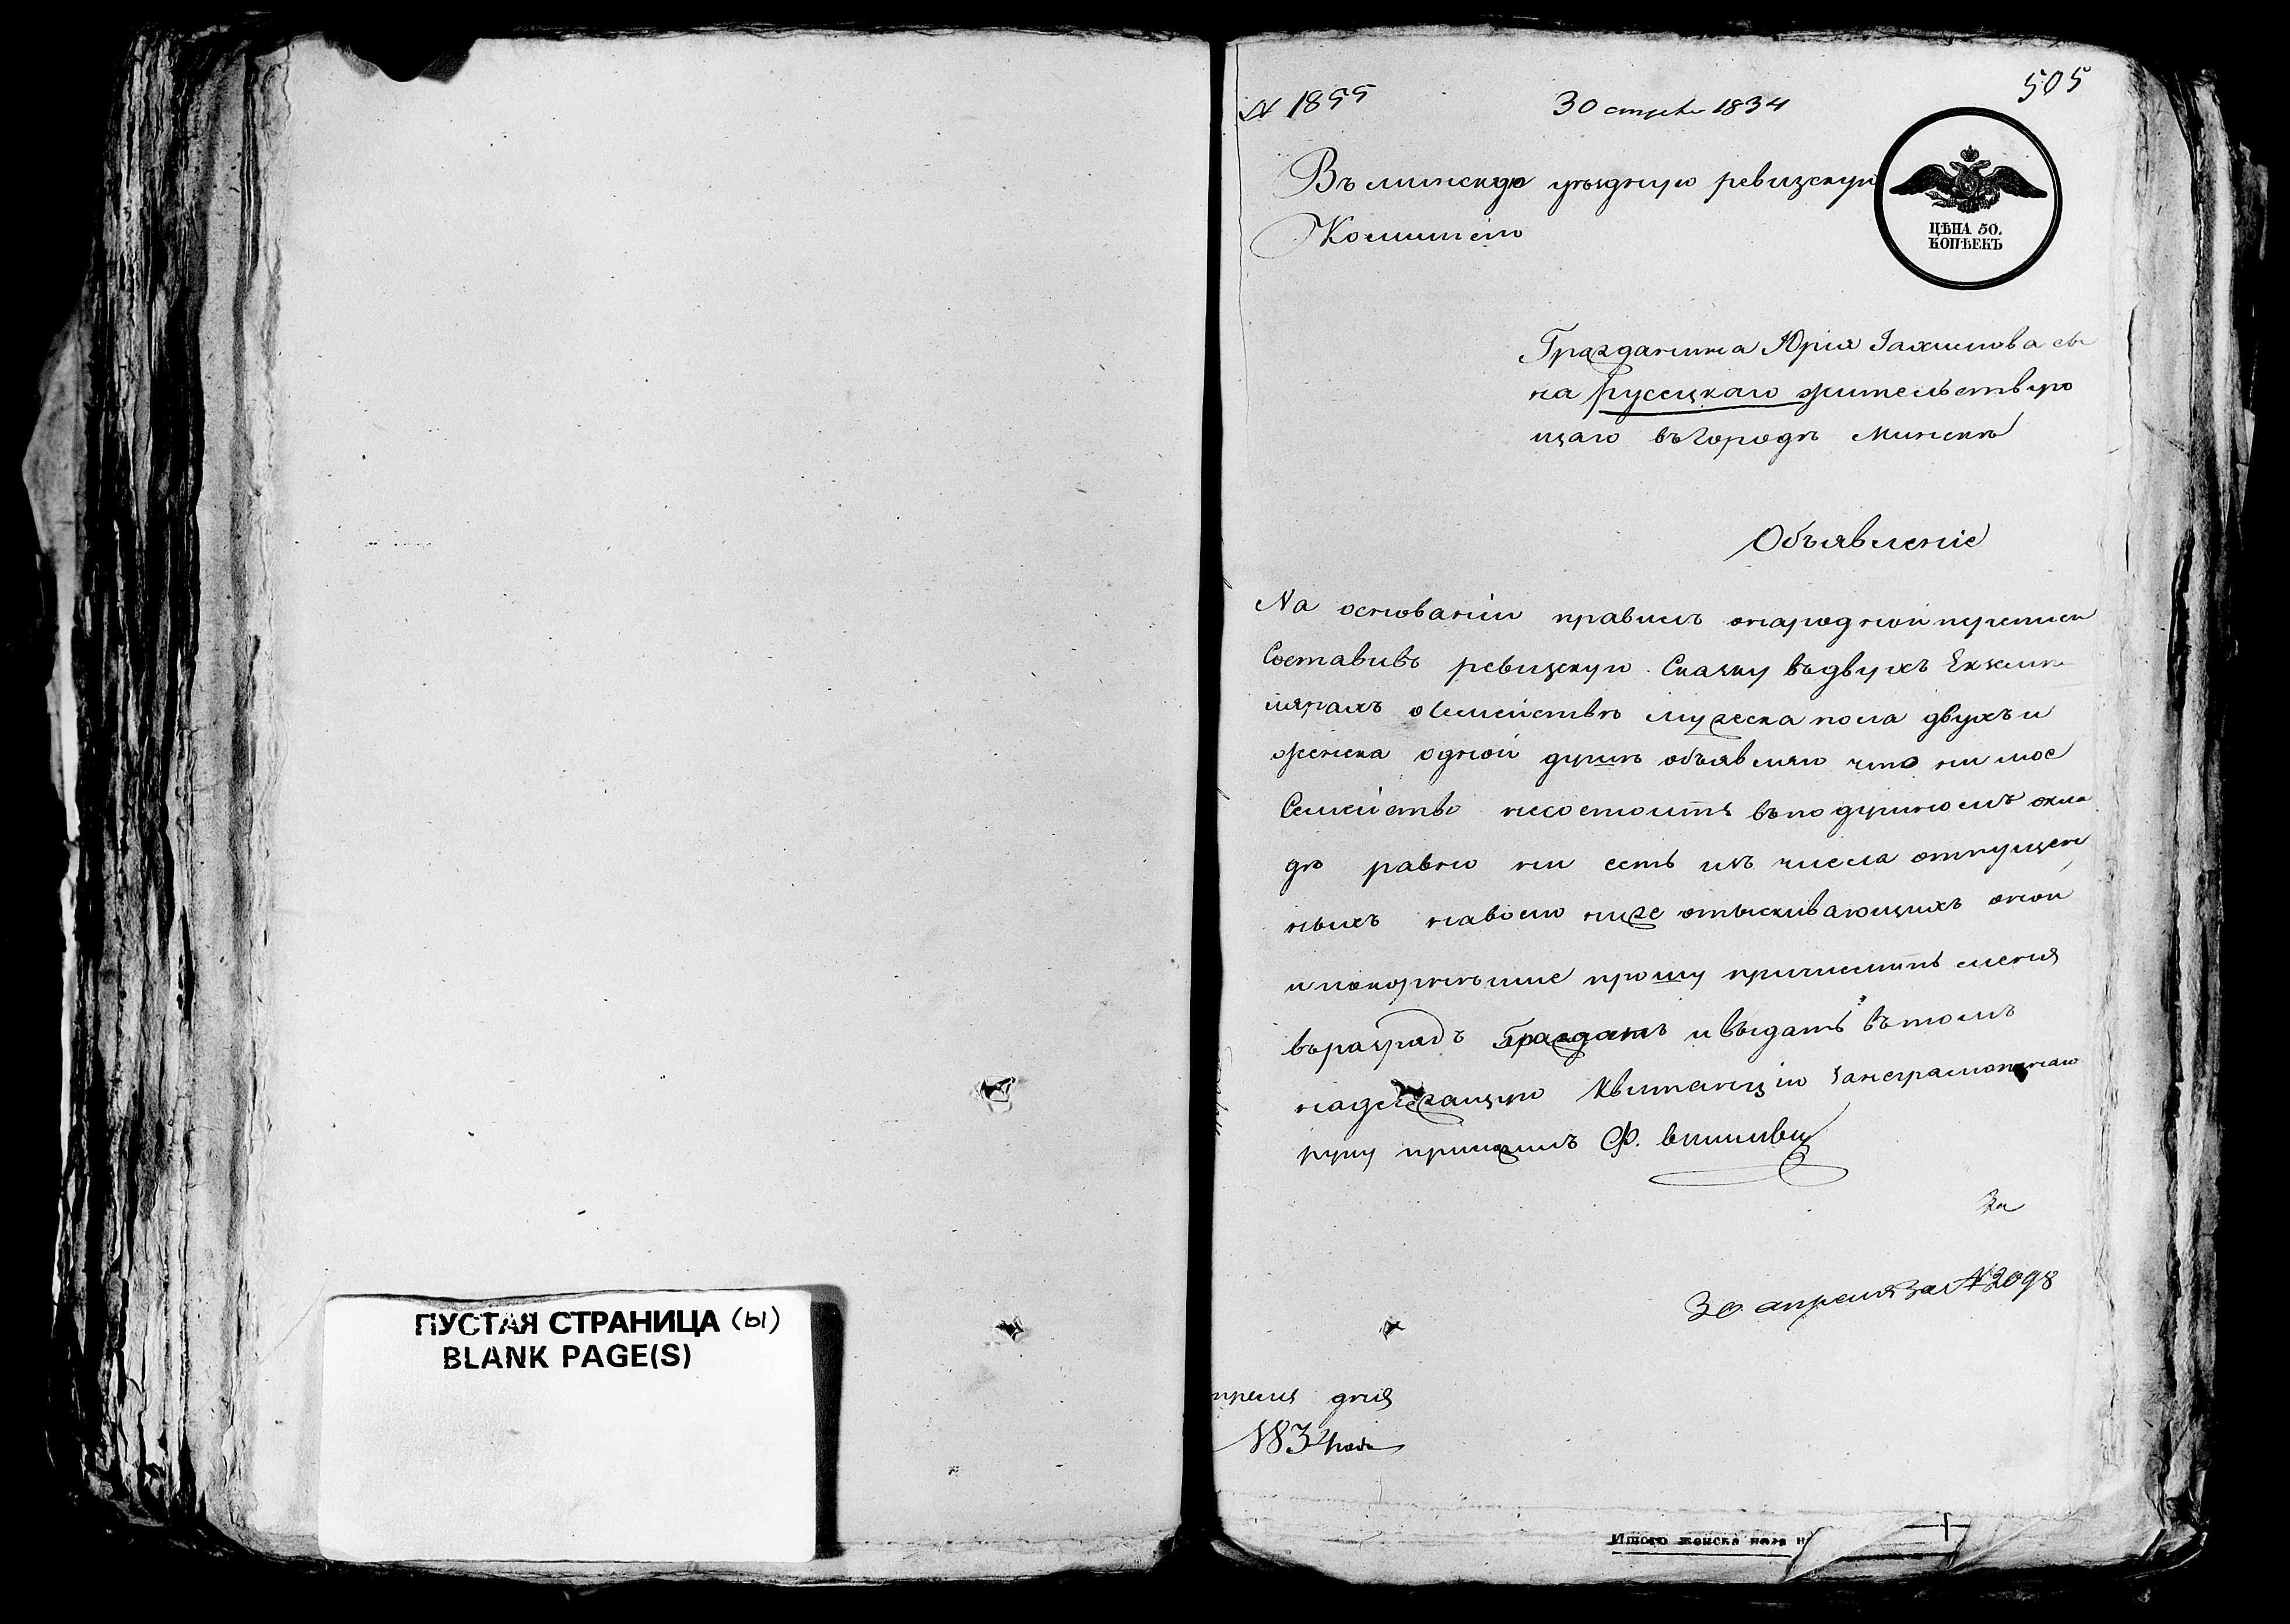 ПУСТАЯ СТРАНИЦА (ы)
BLANK PAGE(S)
505
№ 1855
1834
Въ минскую уѣздную ревизскую
Комисiю
ЦѢНА 50.
КОПѢЕКЪ
Гражданина Юрiя Іахимова сы
на русецкаго жительствую
щаго въ городѣ Минскѣ
Объявленiе
На основанiи правилъ онародной переписи
Составивъ ревизскую Скаску въ двухъ Екземп
лярахъ о семействѣ мужеска пола двухъ и
женска одной душѣ объявляю что ни мое
Семейство несостоитъ въ подушномъ окла
дѣ равно ни есть изъ числа отпущен
ныхъ наволю ниже отыскивающихъ оной
и покорнѣише прошу причислить меня
въ разрядъ Гражданъ и выдать въ томъ
надлежащую Квитанцiю за неграмотнаго
руку приложилъ Ф.
За
30 апреля За № 2098
преля дня
1834 года
Итого женска пола н